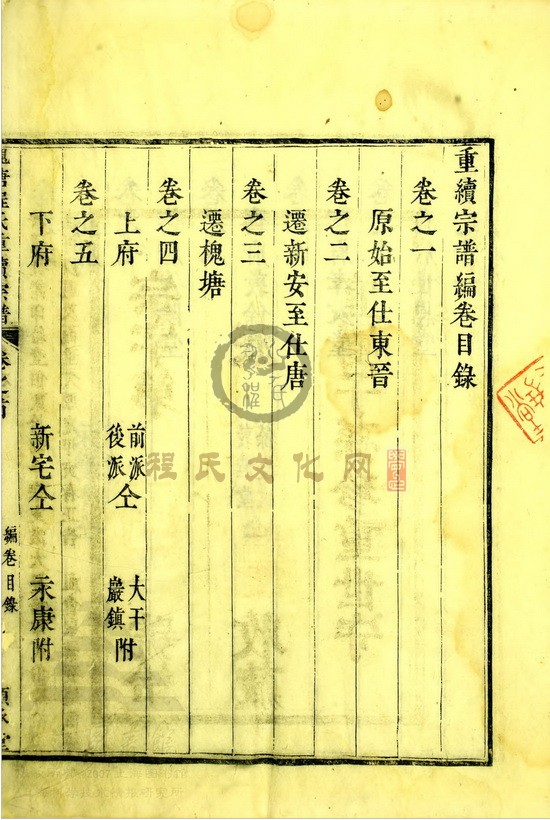 重續宗譜編卷目錄
卷之一
原始至仕東晉
卷之二
遷新安至仕唐
卷之三
遷槐塘
卷之四
上府 前派 後派 仝 大干 巖鎮 附
卷之五
下府 新宅仝 永康附
塘程氏重續宗譜 卷之首 編卷目錄 一 順承堂
程氏文化网